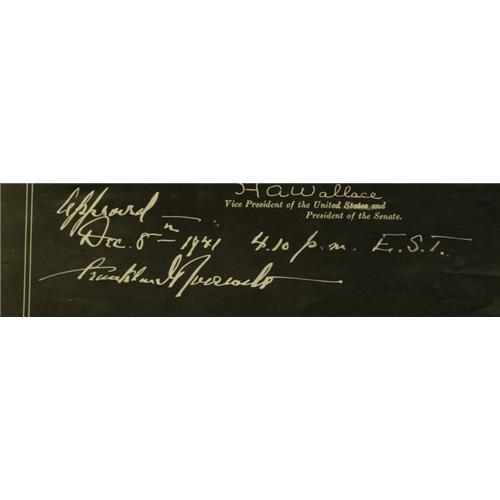 H A Wallace
Vice President of the United States and
President of the Senate.
Approved
Dec. 8th 1941 4.10 p.m. E.S.T.
Franklin D Roosevelt